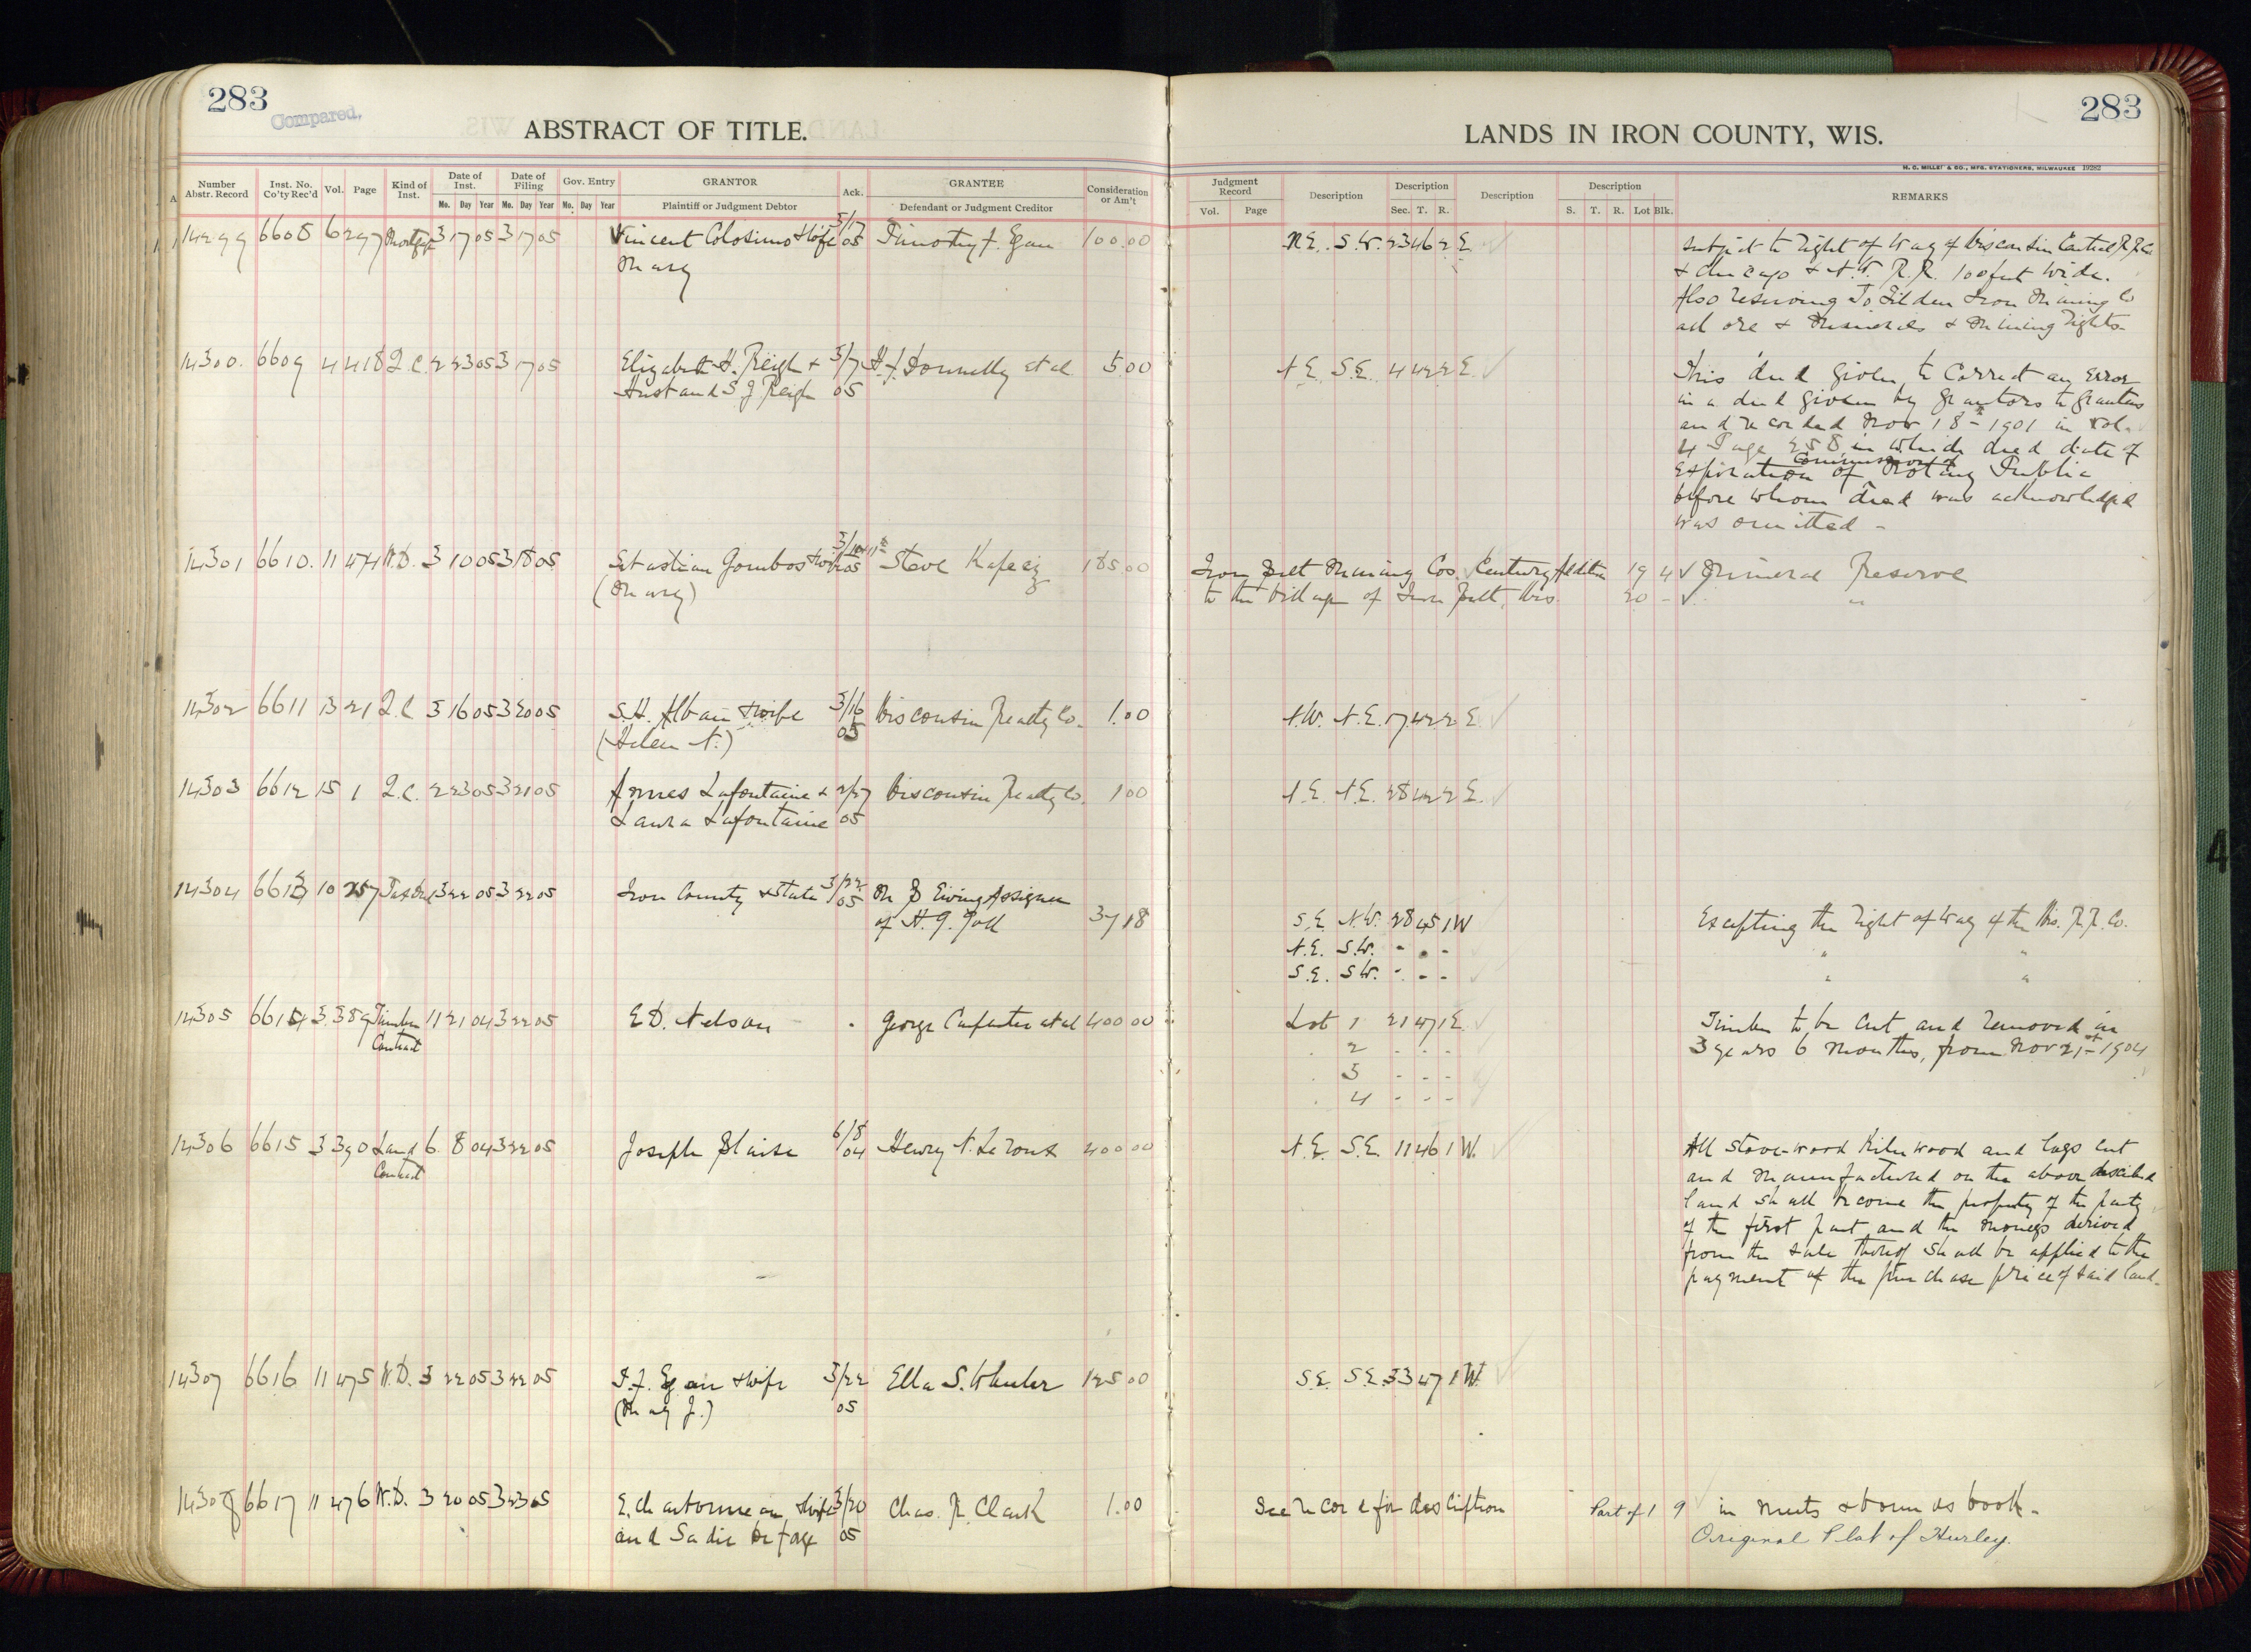 283
Compared.
ABSTRACT OF TITLE.
Number Abstr. Record
Inst. No. Co'ty Rec'd
Vol.
Page
Kind of Inst.
Date of Inst.
Mo. Day Year
Date of Filing
Mo. Day Year
Gov. Entry
Mo. Day Year
GRANTOR
Plaintiff or Judgment Debtor
Ack.
GRANTEE
Defendant or Judgment Creditor
Consideration or Am't
283
LANDS IN IRON COUNTY, WIS.
H. C. MILLER & CO., MFG. STATIONERS, MILWAUKEE 19282
Judgment Record
Vol. Page
Description
Description
Sec. T. R.
Description
Description
S. T. R. Lot Blk.
REMARKS
14299 6608 6 297 Mortgage 3 17 05 3 17 05 Vincent Colosimo & Wife 3/17 05 Timothy F. Egan 100.00 N.E. S.W. 23 46 2 E. Subject to right of Way of Wisconsin Central R.R. Co
Mary & Chicago & N.W. R.R. 100 feet wide.
Also reserving to Tilden Iron Mining Co
all ore & Minerals & Mining rights-
14300. 6609 4 418 Q.C. 2 23 05 3 17 05 Elizabeth H. Reigh & 3/7 H.J. Donnelly et al 5.00 N.E. S.E. 4 42 2 E. This deed given to correct an error
Husband S.J. Reigh 05 in a deed given by grantors to grantees
and recorded Nov 18th-1901 in vol.
4 Page 258 in which deed date of
Commission of
expiration of Notary Public
before whom deed was acknowledged
was omitted -
14301 6610. 11 474 W.D. 3 10 05 3 18 05 Sebastian Gombos & Wife 05 Steve 185.00 Iron Belt Mining Cos. Century Addition 19 4 Mineral Reserve
(Mary) to the village of Iron Belt, Wis. 20 - "
14302 6611 13 21 Q.C 3 16 05 3 20 05 S.H. Alban & wife 3/16 Wisconsin Realty Co. 1.00 N.W. N.E. 17 42 2 E.
(Helen N.) 05
14303 6612 15 1 Q.C. 2 23 05 3 21 05 Lafontaine & 2/27 Wisconsin Realty Co. 1 00 N.E. N.E. 28 42 2 E.
Laura Lafontaine 05
14304 6613 10 257 Tax Deed 3 22 05 3 22 05 Iron County & State 3/22 05 M S Ewing Assignee
of H. G. 37 18 S.E. N.W. 28 45 1 W Excepting the right of way of the Wis. R.R. Co.
N.E. S.W. - - - " "
S.E. S.W. - - - " "
14305 6614 3 389 Timber 11 21 04 3 22 05 E.D. Nelson - George Carpenter et al 400 00 Lot 1 21 47 1 E. Timber to be cut and removed in
Contract " 2 - - - 3 years 6 months, from Nov 21st-1904
" 3 - - -
" 4 - - -
14306 6615 3 390 Land 6 8 04 3 22 05 Joseph Blaise 6/8 04 Henry N. 400 00 N.E. S.E. 11 46 1 W. All stove-wood Kiln wood and logs cut
Contract and manufactured on the above described
land shall become the property of the party
of the first part and the moneys derived
from the sale thereof shall be applied to the
payment of the purchase price of said land-
14307 6616 11 475 W.D. 3 22 05 3 22 05 T.F. Egan & wife 3/22 Ella S. Wheeler 125 00 S.E. S.E. 33 47 1 W.
(Mary J.) 05
14308 6617 11 476 W.D. 3 20 05 3 23 05 & wife 3/20 Chas. R. Clark 1.00 See record for description Part of 1 9 in meets & bounds book-
and Sadie 05 Original Plat of Hurley.